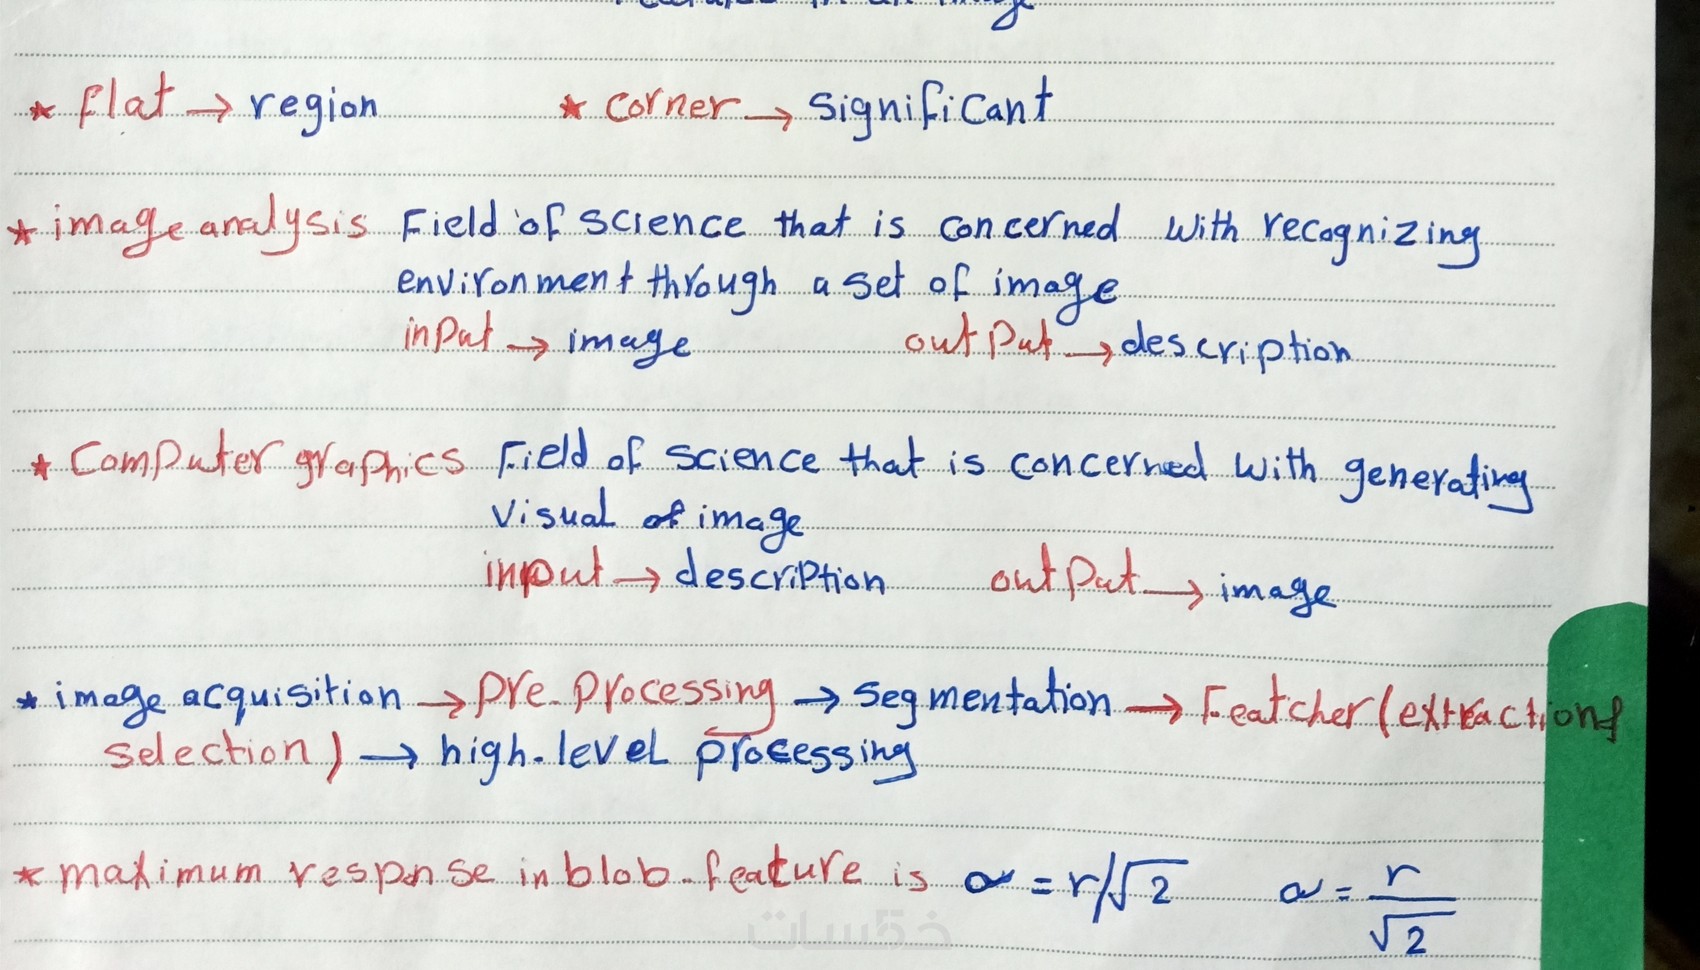 in an image
* flat → region * corner → significant
* image analysis Field of science that is concerned with recognizing
environment through a set of image
input → image output → description
* Computer graphics Field of science that is concerned with generating
visual of image
input → description output → image
* image acquisition → pre-processing → segmentation → Featcher (extraction &
selection) → high-level processing
* maximum response in blob-feature is σ = r/√2 σ = r/√2
خمسات